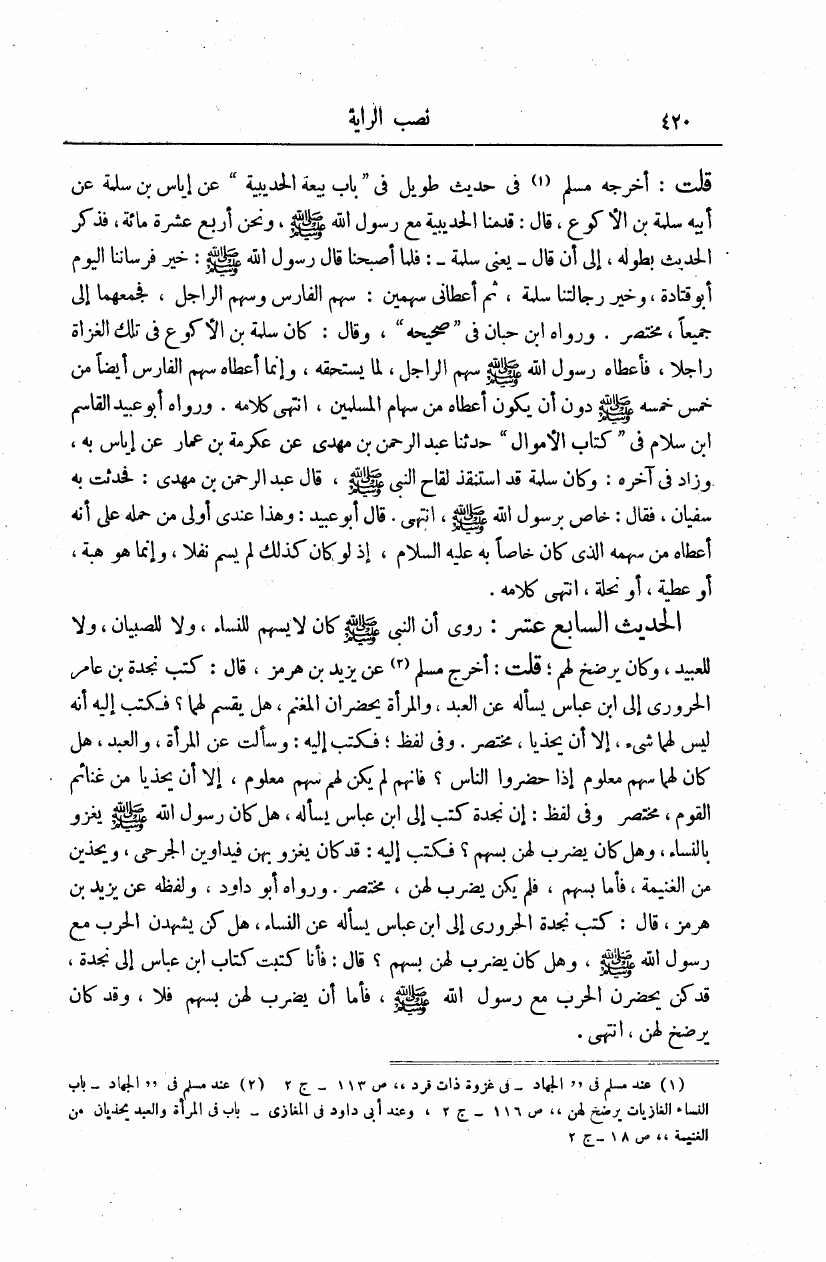 ٤٢٠ نصب الراية
قلت : أخرجه مسلم (١) فى حديث طويل فى "باب بيعة الحديبية " عن إياس بن سلمة عن
أبيه سلمة بن الأكوع ، قال : قدمنا الحديبية مع رسول الله ﷺ ، ونحن أربع عشرة مائة ، فذكر
الحديث بطوله ، إلى أن قال ـ يعنى سلمة ـ : فلما أصبحنا قال رسول الله ﷺ : خير فرساننا اليوم
أبو قتادة ، وخير رجالتنا سلمة ، ثم أعطانى سهمين : سهم الفارس وسهم الراجل ، فجمعهما إلى
جميعاً ، مختصر . ورواه ابن حبان فى "صحيحه" ، وقال : كان سلمة بن الأكوع فى تلك الغزاة
راجلا ، فأعطاه رسول الله ﷺ سهم الراجل ، لما يستحقه ، وإنما أعطاه سهم الفارس أيضاً من
خمس خمسه ﷺ دون أن يكون أعطاه من سهام المسلمين ، انتهى كلامه . ورواه أبو عبيد القاسم
ابن سلام فى " كتاب الأموال" حدثنا عبد الرحمن بن مهدى عن عكرمة بن عمار عن إياس به ،
وزاد فى آخره : وكان سلمة قد استنقذ لقاح النبى ﷺ ، قال عبد الرحمن بن مهدى : فحدثت به
سفيان ، فقال : خاص برسول الله ﷺ ، انتهى . قال أبو عبيد : وهذا عندى أولى من حمله على أنه
أعطاه من سهمه الذى كان خاصاً به عليه السلام ، إذ لو كان كذلك لم يسم نفلا ، وإنما هو هبة ،
أو عطية ، أو نحلة ، انتهى كلامه .
الحديث السابع عشر : روى أن النبى ﷺ كان لا يسهم للنساء ، ولا للصبيان ، ولا
للعبيد ، وكان يرضخ لهم ؛ قلت : أخرج مسلم (٢) عن يزيد بن هرمز ، قال : كتب نجدة بن عامر
الحرورى إلى ابن عباس يسأله عن العبد ، والمرأة يحضران المغنم ، هل يقسم لهما ؟ فكتب إليه أنه
ليس لهما شىء ، إلا أن يحذيا ، مختصر . وفى لفظ ؛ فكتب إليه : وسألت عن المرأة ، والعبد ، هل
كان لهما سهم معلوم إذا حضروا الناس ؟ فانهم لم يكن لهم سهم معلوم ، إلا أن يحذيا من غنائم
القوم ، مختصر وفى لفظ : إن نجدة كتب إلى ابن عباس يسأله ، هل كان رسول الله ﷺ يغزو
بالنساء ، وهل كان يضرب لهن بسهم ؟ فكتب إليه : قد كان يغزو بهن فيداوين الجرحى ، ويحذين
من الغنيمة ، فأما بسهم ، فلم يكن يضرب لهن ، مختصر . ورواه أبو داود ، ولفظه عن يزيد بن
هرمز ، قال : كتب نجدة الحرورى إلى ابن عباس يسأله عن النساء ، هل كن يشهدن الحرب مع
رسول الله ﷺ ، وهل كان يضرب لهن بسهم ؟ قال : فأنا كتبت كتاب ابن عباس إلى نجدة ،
قد كن يحضرن الحرب مع رسول الله ﷺ ، فأما أن يضرب لهن بسهم فلا ، وقد كان
يرضخ لهن ، انتهى .
(١) عند مسلم فى ,, الجهاد ـ فى غزوة ذات قرد ،، ص ١١٣ ـ ج ٢ (٢) عند مسلم فى ,, الجهاد ـ باب
النساء الغازيات يرضخ لهن ،، ص ١١٦ ـ ج ٢ ، وعند أبى داود فى المغازى ـ باب فى المرأة والعبد يحذيان من
الغنيمة ،، ص ١٨ ـ ج ٢